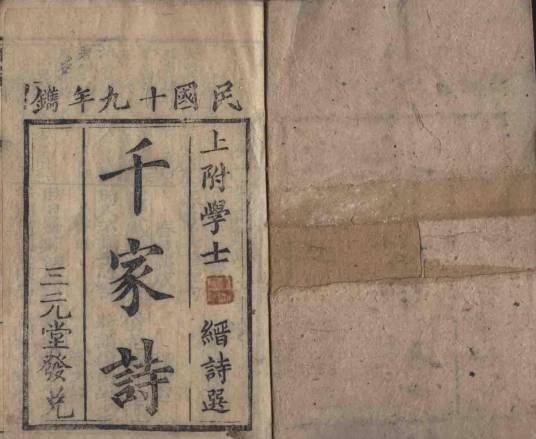 民國十九年鐫
上附學士
縉詩選
千家詩
三元堂發兌